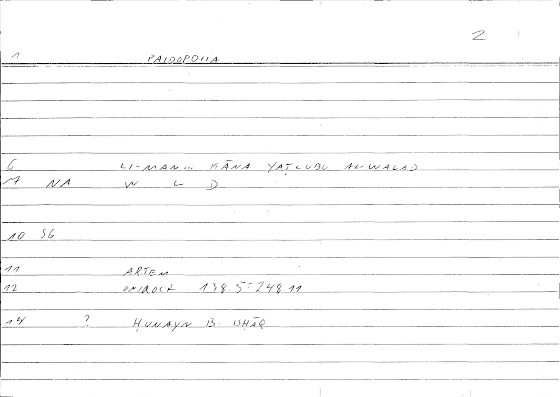 2
1 PAIDOPOIIA
6 LI-MAN... KĀNA YAṬLUBU AL-WALAD
7 NA W L D
10 36
11 ARTEM
12 ONIROCR 138.5 = 248.11
14 ? ḤUNAYN B. ISḤĀQ